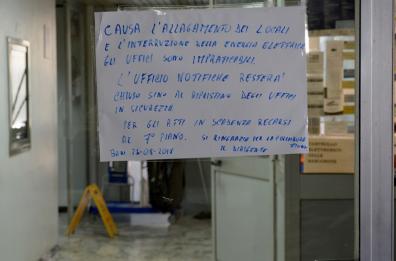 CAUSA L'ALLAGAMENTO DEI LOCALI
E L'INTERRUZIONE DELLA ENERGIA ELETTRICA
GLI UFFICI SONO IMPRATICABILI.
L'UFFICIO NOTIFICHE RESTERA'
CHIUSO SINO AL RIPRISTINO DEGLI UFFICI
IN SICUREZZA
PER GLI ATTI IN SCADENZA RECARSI
AL 7° PIANO. SI RINGRAZIA PER LA
IL DIRIGENTE
BARI
CONTROLLO
ELETTRONICO
DELLE